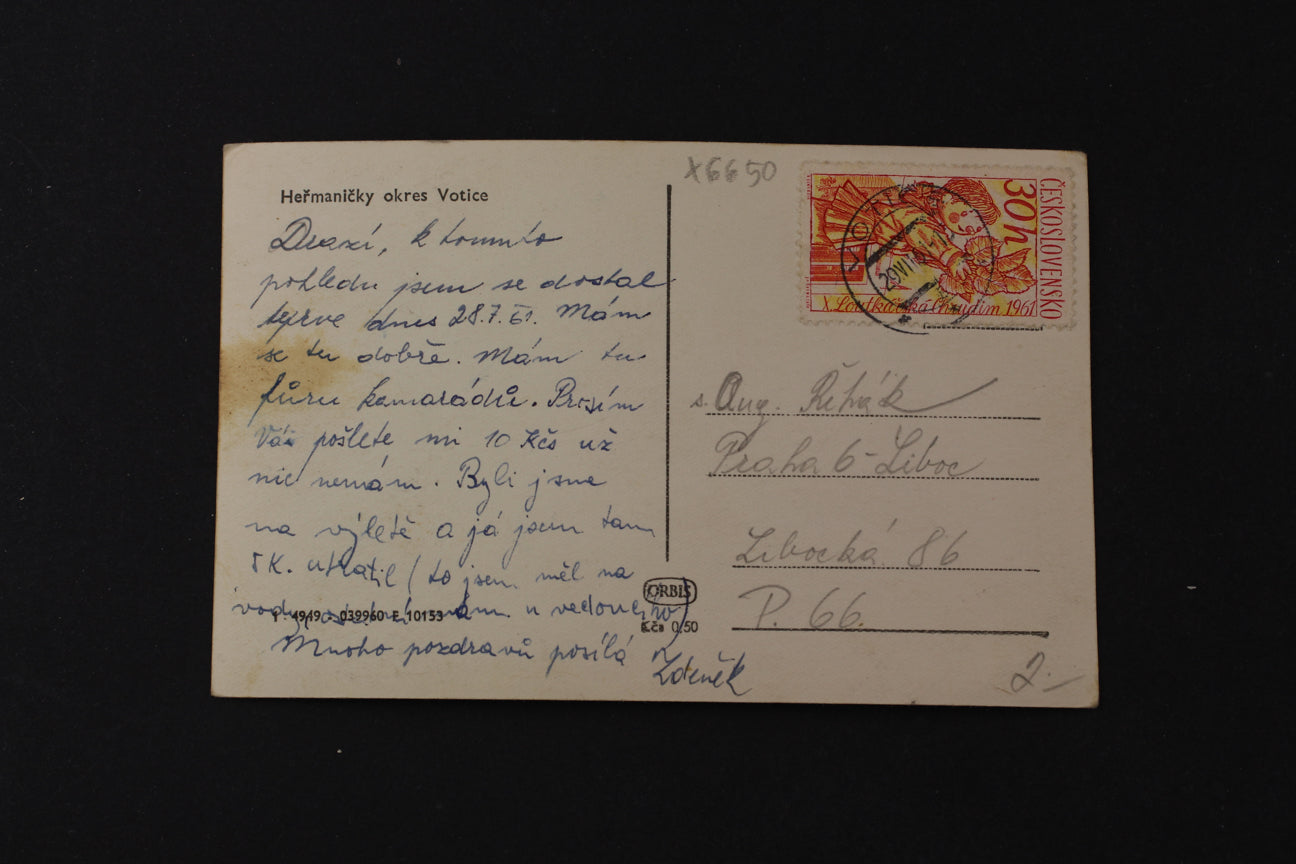 Heřmaničky okres Votice
Drazí, k tomuto
pohledu jsem se dostal
teprve dnes 28.7.61. Mám
se tu dobře. Mám tu
fůru kamarádů. Prosím
Vás pošlete mi 10 Kčs už
nic nemám. Byli jsme
na výletě a já jsem tam
5K. utratil (to jsem měl na
vodu, mám u vedoucího)
Mnoho pozdravů posílá
Zdeněk
T - 4949 - 039960 E 10153
ORBIS
Kčs 0,50
X6650
ČESKOSLOVENSKO
30h
X. Loutkářská Chrudim 1961
29 VII
s. Aug. Řehák
Praha 6-Liboc
Libocká 86
P. 66.
2.-